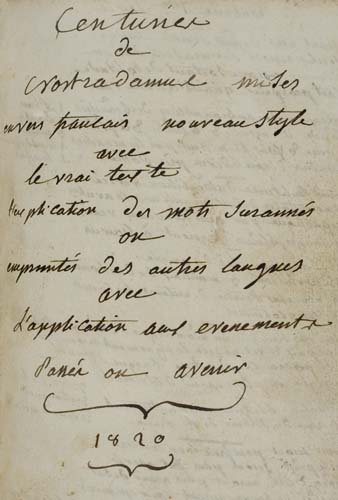 Centuries
de
Nostradamus mises
en vers français nouveau style
avec
le vrai texte
l'explication des mots surannés
ou
empruntés des autres langues
avec
L'application aux evenements
Passés ou avenir
1820